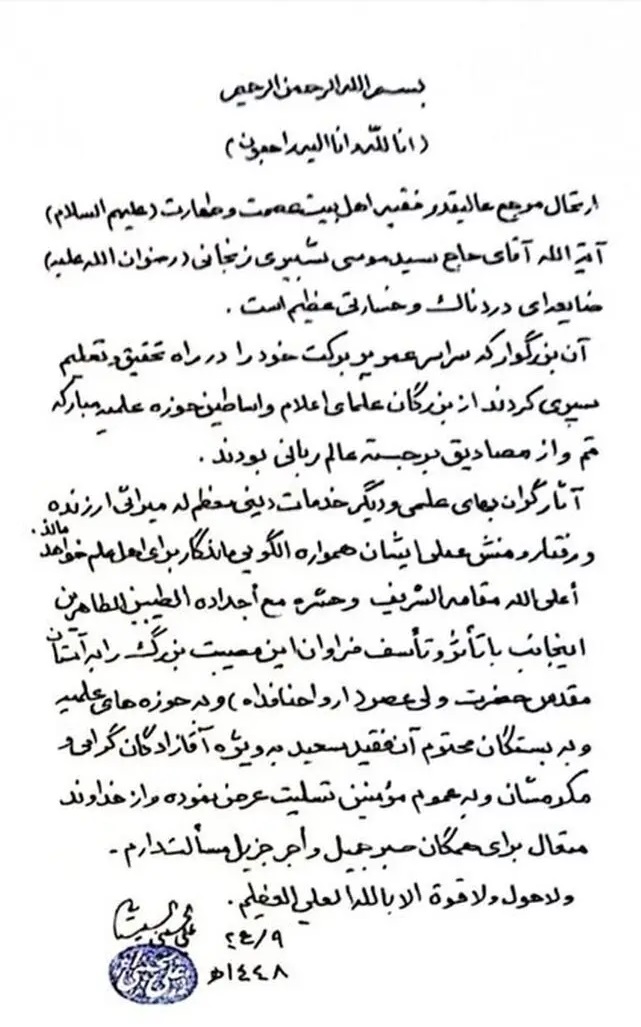 بسم الله الرحمن الرحیم
(انا لله وانا الیه راجعون)
ارتحال مرجع عالیقدر فقیه اهل بیت عصمت و طهارت (علیهم السلام)
آیة الله آقای حاج سید موسی شبیری زنجانی (رضوان الله علیه)
ضایعه‌ای دردناک و خسارتی عظیم است .
آن بزرگوار که سراسر عمر پر برکت خود را در راه تحقیق و تعلیم
سپری کردند از بزرگان علمای اعلام و اساطین حوزه علمیه مبارکه
قم و از مصادیق برجسته عالم ربانی بودند .
آثار گران بهای علمی و دیگر خدمات دینی معظم له میراثی ارزنده
و رفتار و منش عملی ایشان همواره الگویی ماندگار برای اهل علم خواهد ماند .
أعلی الله مقامه الشریف وحشره مع أجداده الطیبین الطاهرین
اینجانب با تأثر و تأسف فراوان این مصیبت بزرگ را به آستان
مقدس حضرت ولی عصر (ارواحنا فداه) و به حوزه های علمیه
و به بستگان محترم آن فقید سعید به ویژه آقازادگان گرامی و
مکرمشان و به عموم مؤمنین تسلیت عرض نموده و از خداوند
متعال برای همگان صبر جمیل و أجر جزیل مسألت دارم .
ولا حول ولا قوة الا بالله العلي العظیم .
علي الحسیني السیستاني
٢٤/٩
١٤٤٨ﻫ